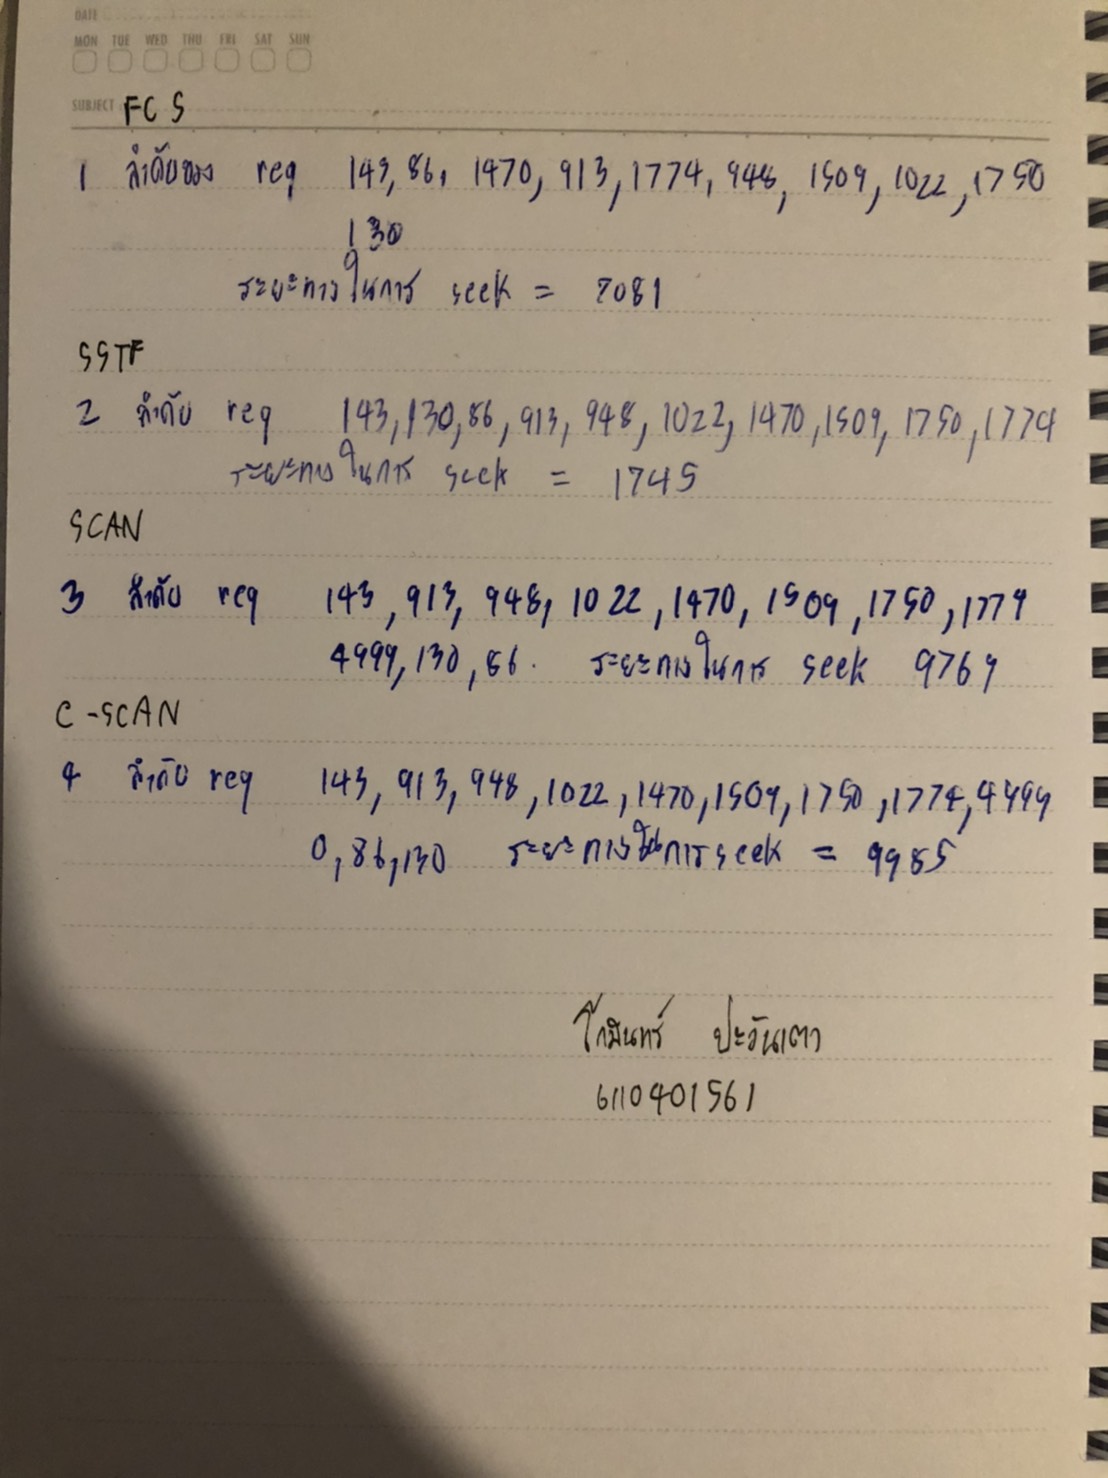 DATE
MON TUE WED THU FRI SAT SUN
SUBJECT FC S
1 ลำดับของ req 143, 86, 1470, 913, 1774, 948, 1509, 1022, 1750
130
ระยะทางในการ seek = 7081
SSTF
2 ลำดับ req 143, 130, 86, 913, 948, 1022, 1470, 1509, 1750, 1774
ระยะทางในการ seek = 1745
SCAN
3 ลำดับ req 143, 913, 948, 1022, 1470, 1509, 1750, 1774
4999, 130, 86. ระยะทางในการ seek 9769
C-SCAN
4 ลำดับ req 143, 913, 948, 1022, 1470, 1509, 1750, 1774, 4999
0, 86, 130 ระยะทางในการ seek = 9985
โกมินทร์ ปะวันเตา
6110401561